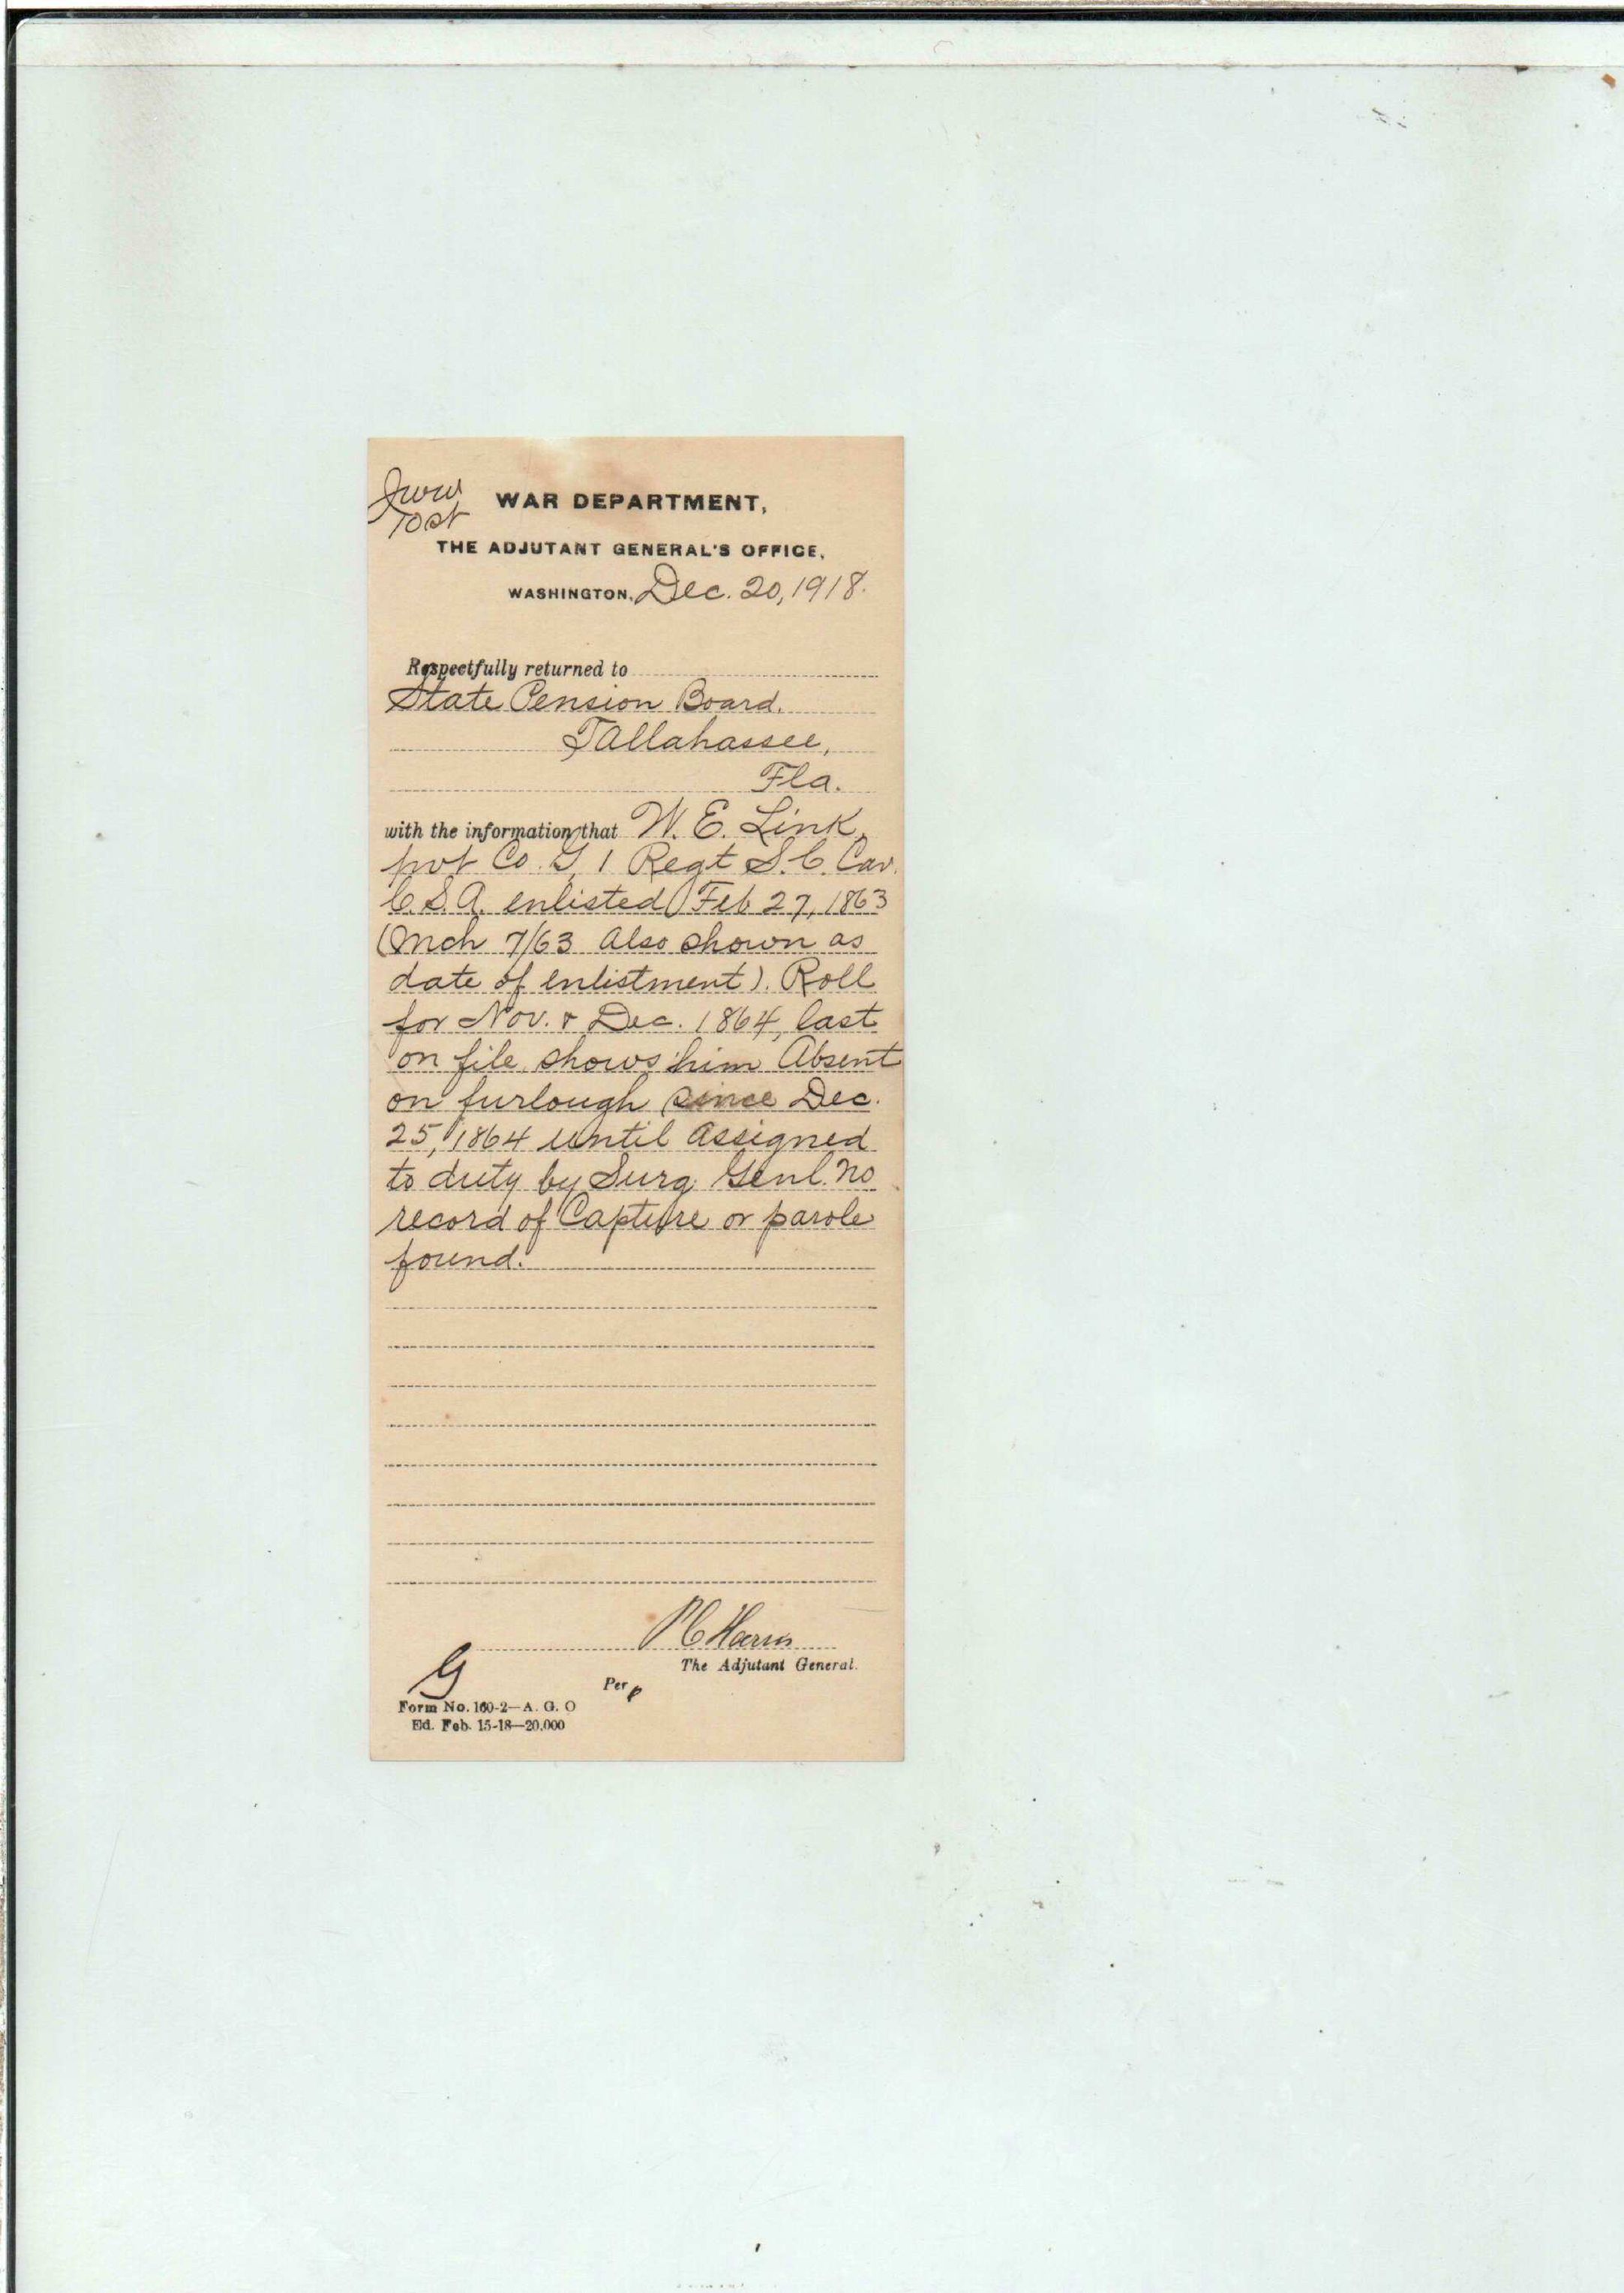 WAR DEPARTMENT,
THE ADJUTANT GENERAL'S OFFICE,
WASHINGTON, Dec. 20, 1918.
Respectfully returned to
State Pension Board.
Tallahassee,
Fla.
with the information that W. E. Link,
pvt Co. G, 1 Regt S.C. Cav.
C.S.A. enlisted Feb 27, 1863
(Mch 7/63 also shown as
date of enlistment). Roll
for Nov. & Dec. 1864, last
on file, shows him Absent
on furlough since Dec.
25, 1864 until assigned
to duty by Surg. Genl. No
record of Capture or parole
found.
P C Harris
The Adjutant General.
G
Per
Form No. 160-2—A. G. O
Ed. Feb. 15-18—20,000